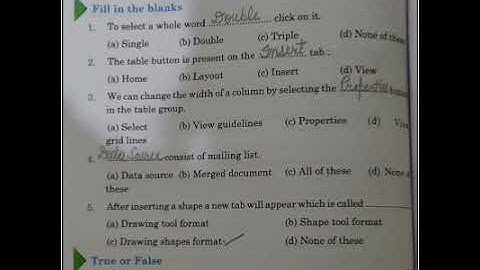 Fill in the blanks
1. To select a whole word Double click on it.
(a) Single (b) Double (c) Triple (d) None of these
2. The table button is present on the Insert tab.
(a) Home (b) Layout (c) Insert (d) View
3. We can change the width of a column by selecting the Properties
in the table group.
(a) Select (b) View guidelines (c) Properties (d)
grid lines
4. Data Source consist of mailing list.
(a) Data source (b) Merged document (c) All of these (d) None
these
5. After inserting a shape a new tab will appear which is called
(a) Drawing tool format (b) Shape tool format
(c) Drawing shapes format (d) None of these
True or False